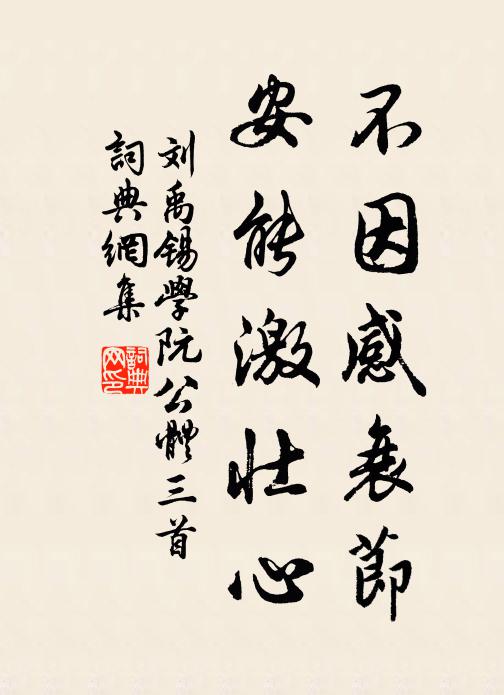 不因感衰節
安能激壯心
刘禹锡學阮公體三首
詞典網集
詞典網印